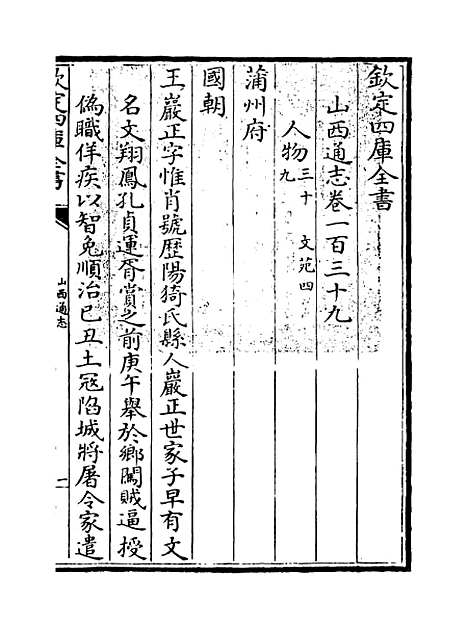 欽定四庫全書
山西通志卷一百三十九
人物三十九 文苑四
蒲州府
國朝
王巖正字惟肖號歴陽猗氏縣人巖正世家子早有文
名文翔鳳孔貞運胥賞之前庚午舉於鄉闖賊逼授
偽職佯疾以智免順治己丑土冦陷城將屠令家遣
欽定四庫全書
山西通志
一